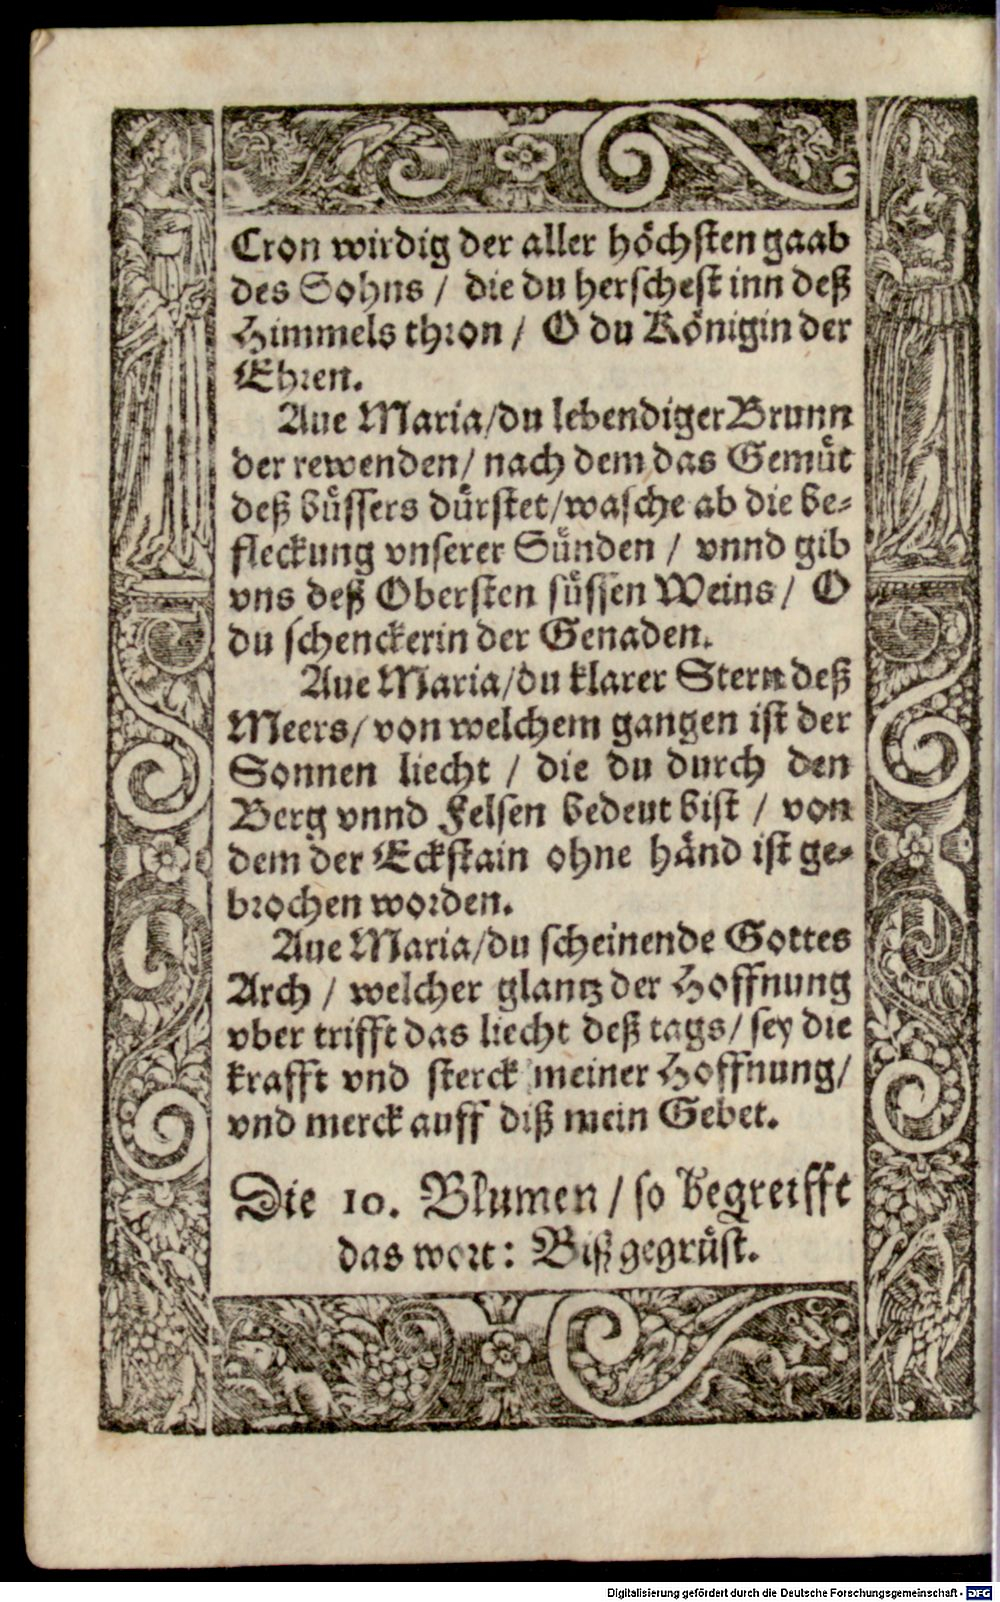 Cron wirdig der aller höchsten gaab
des Sohns / die du herschest inn deß
Himmels thron / O du Königin der
Ehren.
Aue Maria/du lebendiger Brunn
der rewenden/ nach dem das Gemüt
deß büssers dürstet/wasche ab die be-
fleckung vnserer Sünden / vnnd gib
vns deß Obersten süssen Weins / O
du schenckerin der Genaden.
Aue Maria/du klarer Stern deß
Meers/ von welchem gangen ist der
Sonnen liecht / die du durch den
Berg vnnd Felsen bedeut bist / von
dem der Eckstain ohne händ ist ge-
brochen worden.
Aue Maria/du scheinende Gottes
Arch / welcher glantz der Hoffnung
vber trifft das liecht deß tags/ sey die
krafft vnd sterck meiner Hoffnung/
vnd merck auff diß mein Gebet.
Die 10. Blumen / so begreifft
das wort: Biß gegrüst.
Digitalisierung gefördert durch die Deutsche Forschungsgemeinschaft - DFG